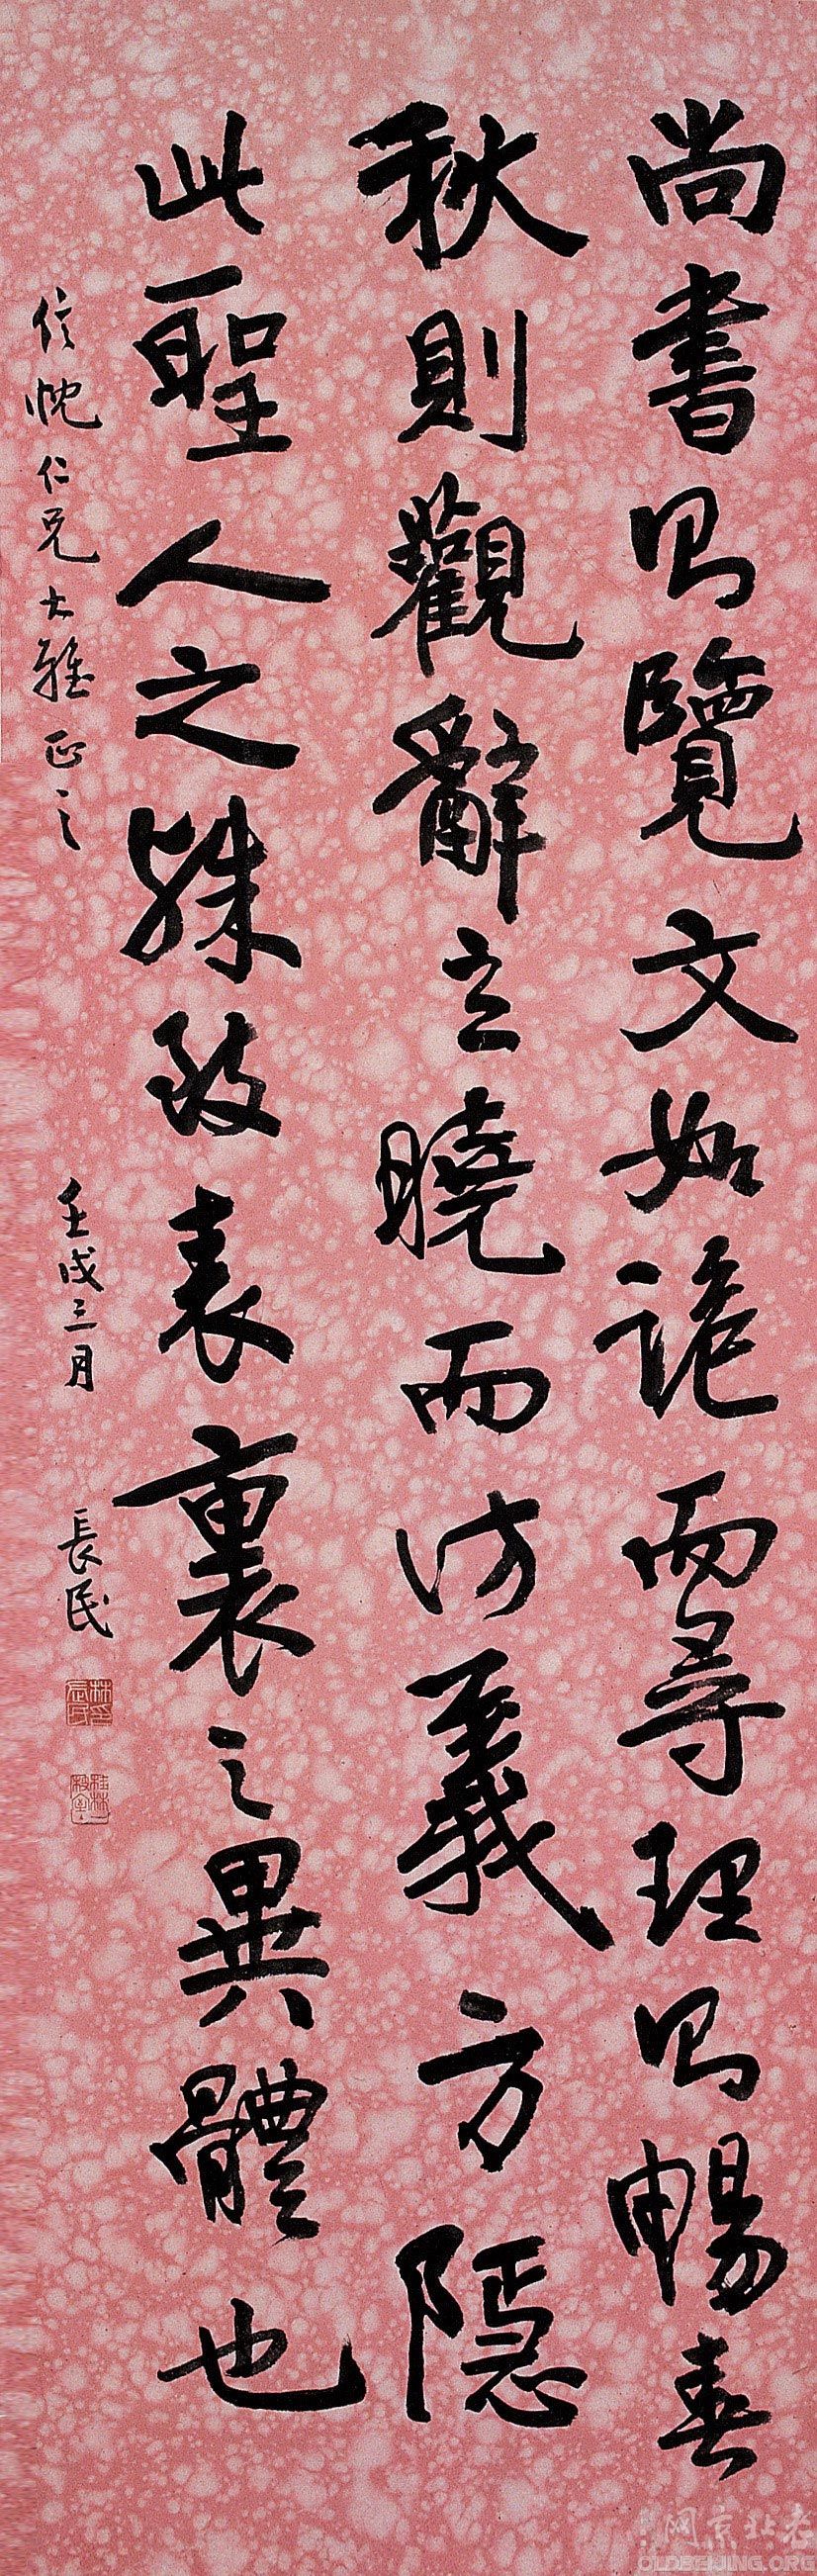 尚書則覽文如詭而尋理則暢春
秋則觀辭立曉而訪義方隱
此聖人之殊致表裏之異體也
忱仁兄大雅正之 壬戌三月 長民
林印長民
老北京網
OLDBEIJING.ORG